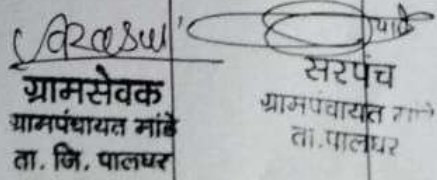 ग्रामसेवक
ग्रामपंचायत मांडे
ता. जि. पालघर
सरपंच
ग्रामपंचायत
ता. पालघर